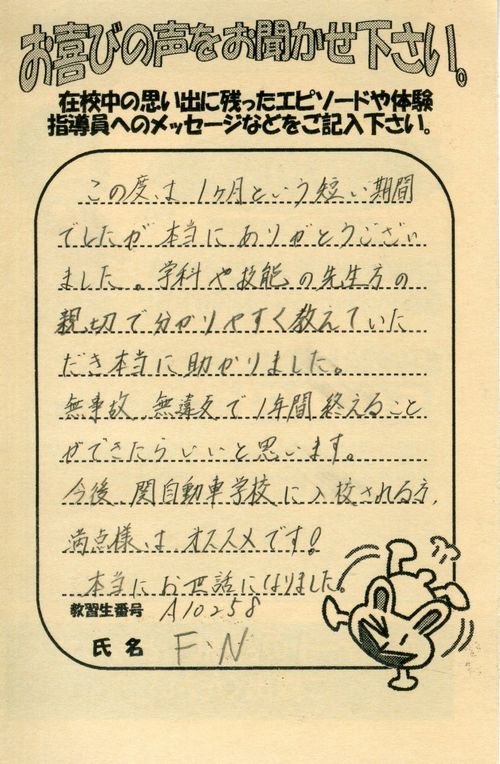 お喜びの声をお聞かせ下さい。
在校中の思い出に残ったエピソードや体験
指導員へのメッセージなどをご記入下さい。
この度は1ヶ月という短い期間
でしたが本当にありがとうござい
ました。学科や技能の先生方の
親切で分かりやすく教えていた
だき本当に助かりました。
無事故、無違反で1年間終えること
ができたらいいと思います。
今後、関自動車学校に入校される方、
満点様はオススメです!
本当にお世話になりました。
教習生番号 A10258
氏名 F.N